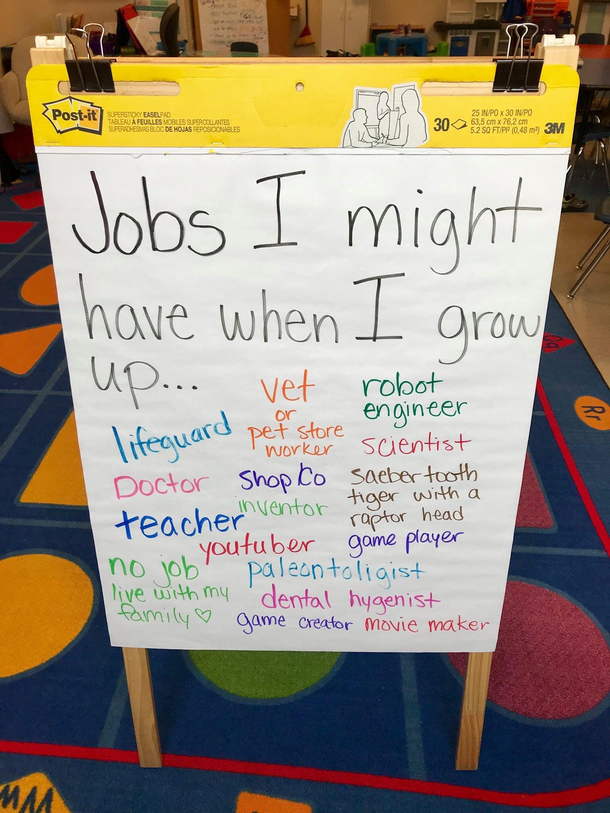 Post-it
SUPERSTICKY EASEL PAD
TABLEAU À FEUILLES MOBILES SUPER COLLANTES
SUPERADHESIVAS BLOC DE HOJAS REPOSICIONABLES
30
25 IN/PO x 30 IN/PO
63,5 cm x 76,2 cm
5.2 SQ FT/PI² (0,48 m²)
3M
Jobs I might
have when I grow
up...
vet
or
pet store
worker
robot
engineer
lifeguard
scientist
Doctor
Shop Ko
saeber tooth
tiger with a
raptor head
inventor
teacher
game player
youtuber
no job
live with my
family ♡
paleontoligist
dental hygenist
game creator
movie maker
Rr
Ww